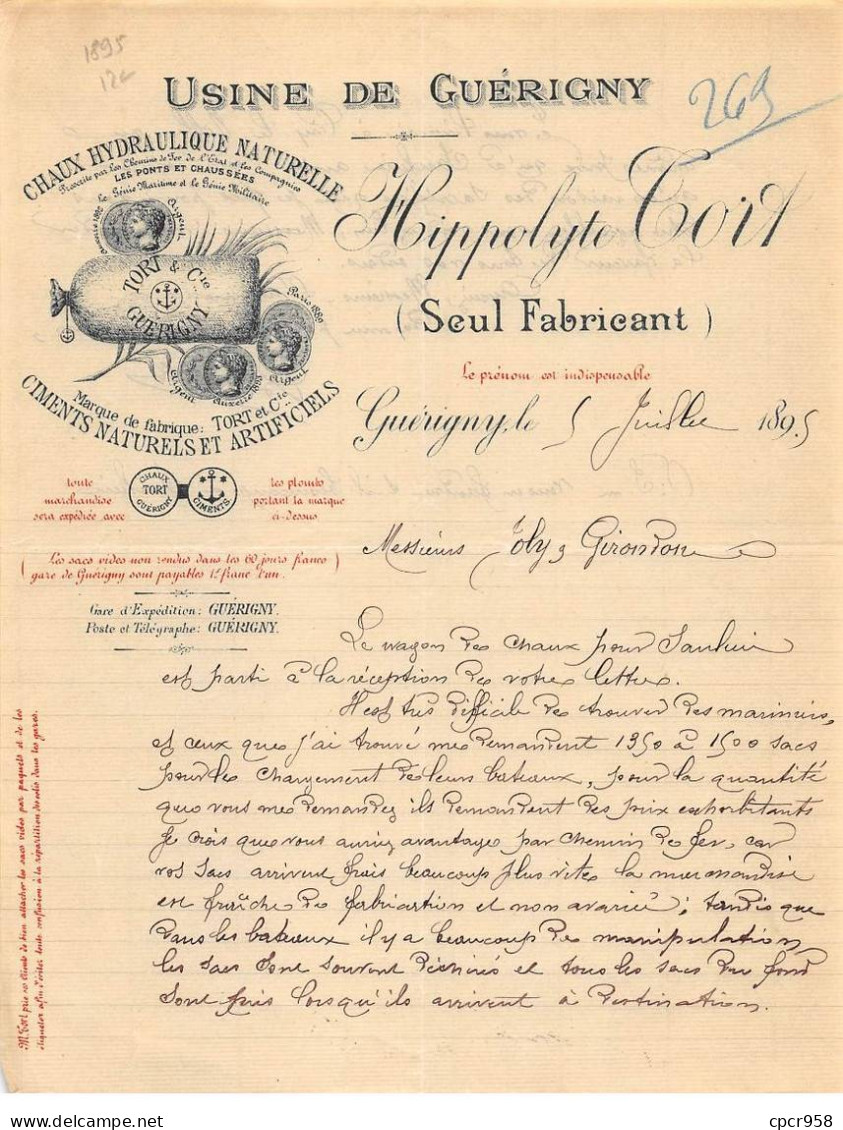 1895
USINE DE GUÉRIGNY
269
CHAUX HYDRAULIQUE NATURELLE
Prescrite par les Chemins de Fer de l'Etat et les Compagnies
LES PONTS ET CHAUSSÉES
le Génie Maritime et le Génie Militaire
Argent
TORT & Cie
GUÉRIGNY
Paris 1889
Argent
Argent
Marque de fabrique: TORT et Cie
CIMENTS NATURELS ET ARTIFICIELS
Hippolyte Tort
(Seul Fabricant)
Le prénom est indispensable
Guérigny, le 5 Juillet 1895
toute
marchandise
sera expédiée avec
CHAUX
TORT
GUÉRIGNY
CIMENTS
les plombs
portant la marque
ci-dessus
(Les sacs vides non rendus dans les 60 jours franco
gare de Guérigny sont payables 1 franc l'un.)
Gare d'Expédition: GUÉRIGNY.
Poste et Télégraphe: GUÉRIGNY.
Messieurs Joly & Girondon
Le wagon de chaux pour Saulieu
est parti à la réception de votre lettre.
Il est très difficile de trouver des mariniers,
et ceux que j'ai trouvé me demandent 1350 à 1500 sacs
pour le chargement de leurs bateaux, pour la quantité
que vous me demandez ils demandent des prix exhorbitants
Je crois que vous auriez avantage par chemin de fer, car
vos sacs arrivent frais beaucoup plus vite la marchandise
est fraîche de fabrication et non avariée; tandis que
dans les bateaux il y a beaucoup de manipulation,
les sacs sont souvent déchirés et tous les sacs du fond
sont pris lorsqu'ils arrivent à destination.
M. Tort prie ses clients de bien attacher les sacs vides par paquets et de les
étiqueter afin d'éviter toute confusion à la répartition desdits dans les gares.
cpcr958